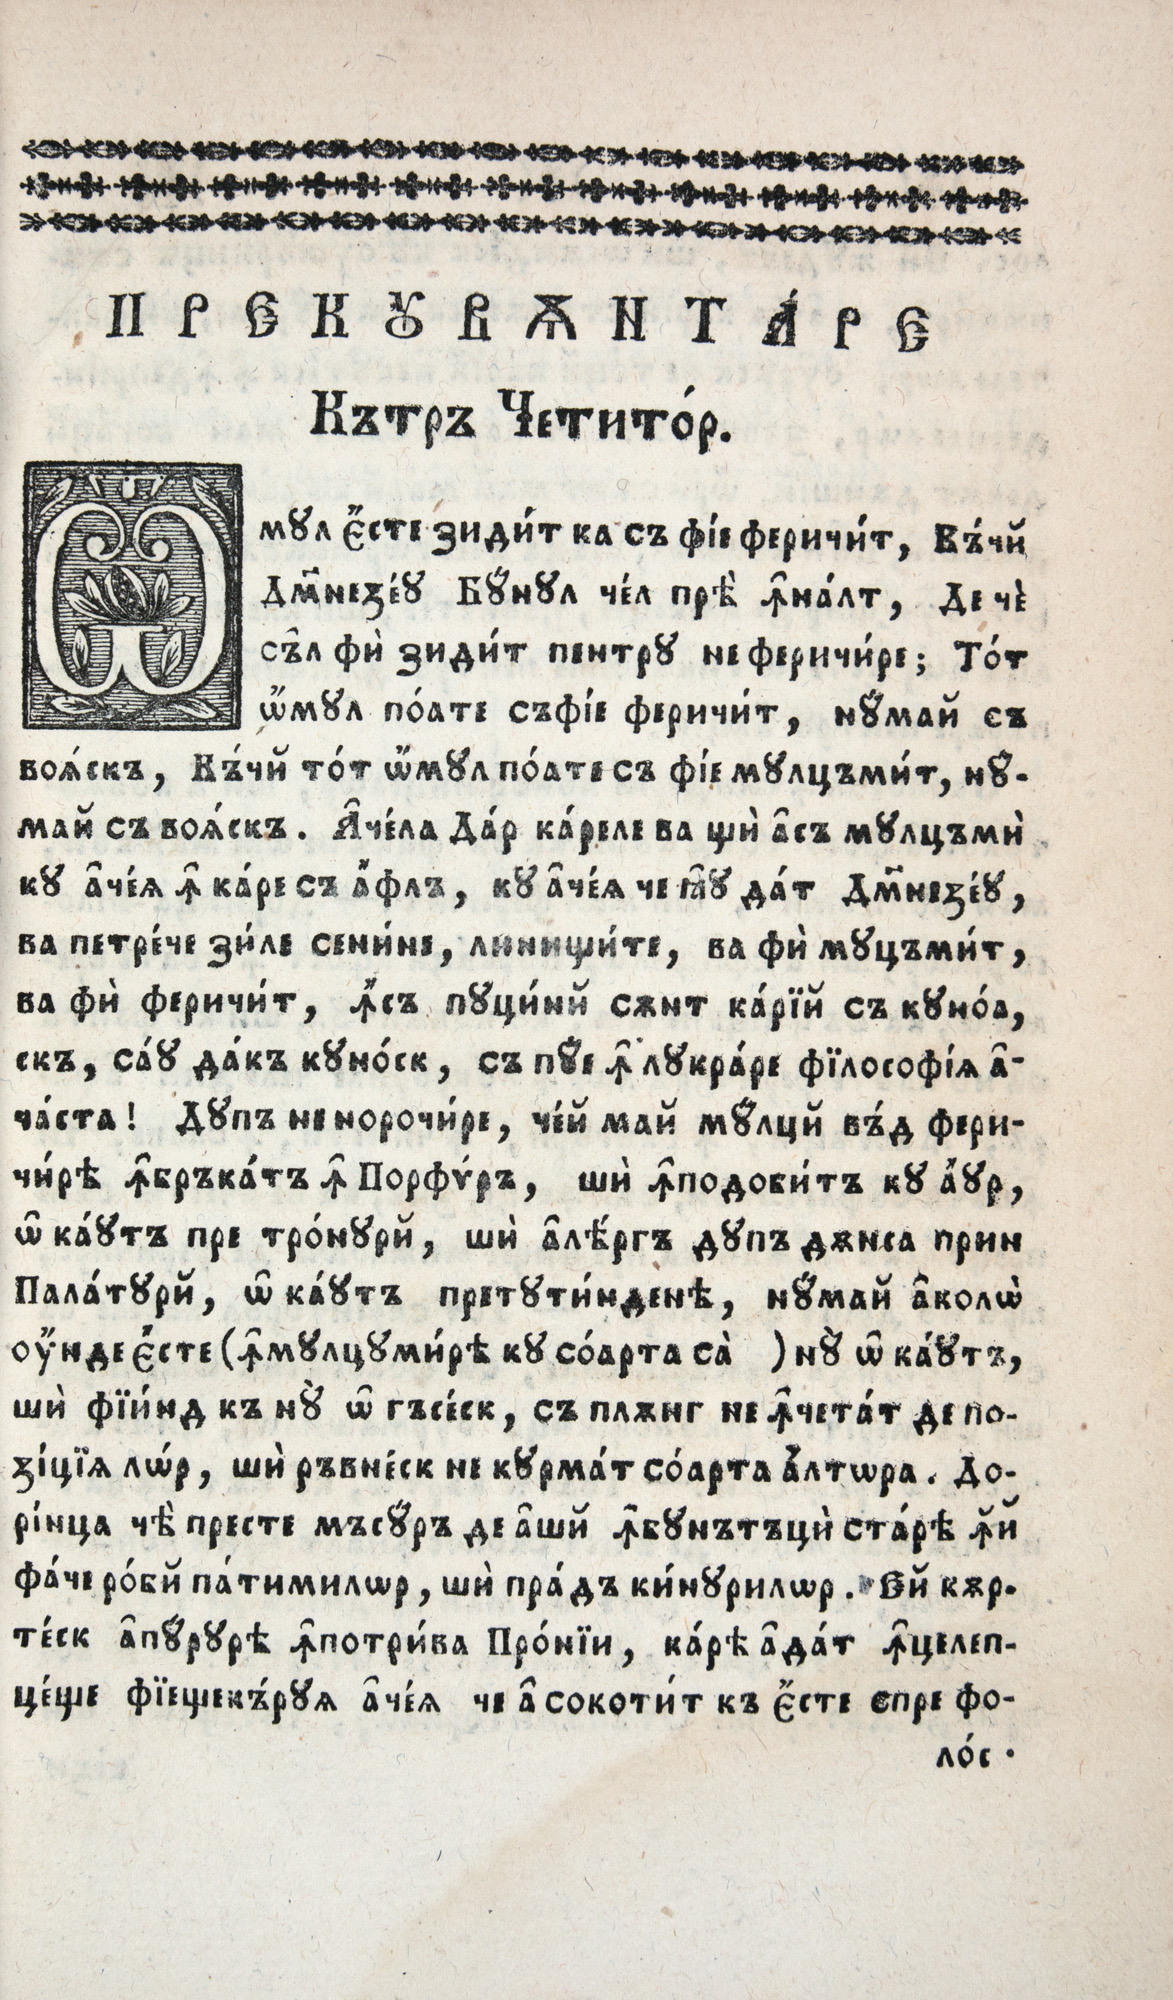 ПРЄКꙊВѪНТА́РЄ
Кътръ Четито́р.
Ѡ҆мꙋл є҆́сте зиди́т ка съ фі́е феричи́т, Къ́чй
Дм҃незе́ꙋ Бꙋ́нꙋл че́л прѣ̀ ꙟ҆на́лт, Де чѐ
съ̑л фѝ зиди́т пентрꙋ неферичи́ре; То́т
ѡ҆́мꙋл по́ате съфі́е феричи́т, нꙋ́май съ
воѧ́скъ, Къ́чй то́т ѡ҆́мꙋл по́ате съ фі́е мꙋлцъми́т, нꙋ́-
май съ воѧ́скъ. А҆че́ла Да́р ка́реле ва щѝ а҆съ мꙋлцъмѝ
кꙋ а҆че́ѧ ꙟ҆ ка́ре съ а҆́флъ, кꙋ а҆че́ѧ че і҆̑ꙋ да́т Дм҃незе́ꙋ,
ва петре́че зи́ле сени́не, линищи́те, ва фѝ мꙋцъми́т,
ва фѝ феричи́т, ꙟ҆́съ пꙋци́нй сѫнт ка́рїй съ кꙋно́а,
скъ, са́ꙋ да́къ кꙋно́ск, съ пꙋ́е ꙟ҆ лꙋкра́ре фїлософі́ѧ а҆-
ча́ста! Дꙋпъ ненорочи́ре, че́й май мꙋ́лцй въ́д фери-
чи́рѣ ꙟ҆бръка́тъ ꙟ҆ Порфѵ́ръ, шѝ ꙟ҆подоби́тъ кꙋ а҆́ꙋр,
ѡ҆ ка́ꙋтъ пре тро́нꙋрй, шѝ а҆лѣ́ргъ дꙋпъ дѫнса прин
Пала́тꙋрй, ѡ҆ ка́ꙋтъ претꙋти́нденѣ, нꙋ́май а҆колѡ̀
ᲂу҆́нде є҆́сте (ꙟ҆мꙋлцꙋми́рѣ кꙋ со́арта са̀ ) нꙋ̀ ѡ҆ ка́ꙋтъ,
шѝ фїи́нд къ нꙋ̀ ѡ҆ гъсе́ск, съ плѫнг неꙟ҆чета́т де по-
зі́цїѧ лѡ́р, шѝ ръвне́ск некꙋрма́т со́арта а҆́лтѡра. До-
рі́нца чѣ̀ престе мъсꙋ́ръ де а҆шй ꙟ҆бꙋнътъцѝ ста́рѣ ꙟ҆́й
фа́че ро́бй па́тимилѡр, шѝ пра́дъ ки́нꙋрилѡр. Єй кѫр-
те́ск а҆пꙋ́рꙋрѣ ꙟ҆потри́ва Про́нїи, ка́рѣ а҆да́т ꙟ҆целеп-
це́ще фїещекъ́рꙋѧ а҆че́ѧ че а҆ сокоти́т къ є҆́сте спре фо-
ло́с·